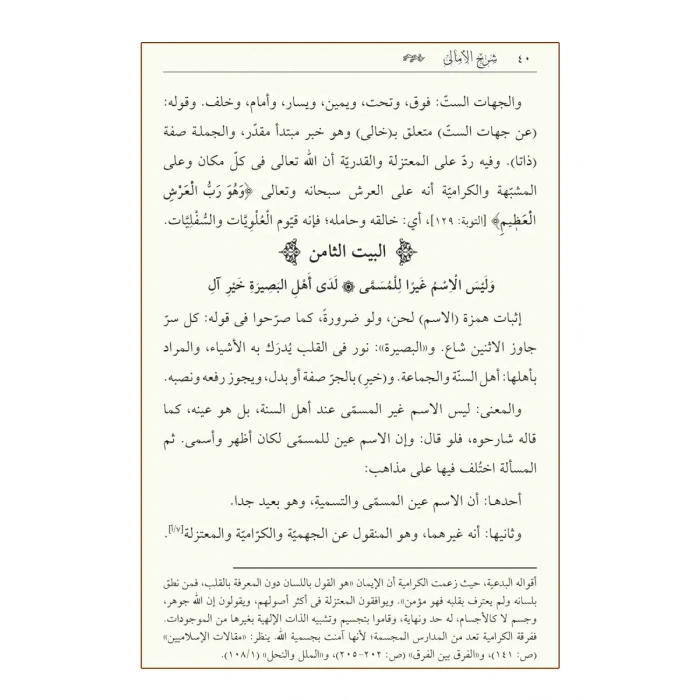 ٤٠ شرح الأمالي
والجهات الستّ: فوق، وتحت، ويمين، ويسار، وأمام، وخلف. وقوله:
(عن جهات الستّ) متعلق بـ(خالى) وهو خبر مبتدأ مقدّر، والجملة صفة
(ذاتا). وفيه ردّ على المعتزلة والقدريّة أن الله تعالى فى كلّ مكان وعلى
المشبّهة والكرامية أنه على العرش سبحانه وتعالى ﴿وَهُوَ رَبُّ الْعَرْشِ
الْعَظِيمِ﴾ [التوبة: ١٢٩]، أي: خالقه وحامله؛ فإنه قيّوم الْعُلْوِيَّات والسُّفْلِيَّات.
البيت الثامن
وَلَيْسَ الْاِسْمُ غَيرًا لِلْمُسَمَّى ۞ لَدَى أَهْلِ البَصِيرَةِ خَيْرِ آلِ
إثبات همزة (الاسم) لحن، ولو ضرورةً، كما صرّحوا فى قوله: كل سرّ
جاوز الاثنين شاع. و«البصيرة»: نور فى القلب يُدرَك به الأشياء، والمراد
بأهلها: أهل السنّة والجماعة. و(خيرِ) بالجرّ صفة أو بدل، ويجوز رفعه ونصبه.
والمعنى: ليس الاسم غير المسمّى عند أهل السنة، بل هو عينه، كما
قاله شارحوه، فلو قال: وإن الاسم عين للمسمّى لكان أظهر وأسمى. ثم
المسألة اختُلف فيها على مذاهب:
أحدها: أن الاسم عين المسمّى والتسميةِ، وهو بعيد جدا.
وثانيها: أنه غيرهما، وهو المنقول عن الجهميّة والكرّاميّة والمعتزلة[٧/أ].
أقواله البدعية، حيث زعمت الكرامية أن الإيمان «هو القول باللسان دون المعرفة بالقلب، فمن نطق
بلسانه ولم يعترف بقلبه فهو مؤمن». ويوافقون المعتزلة فى أكثر أصولهم، ويقولون إن الله جوهر،
وجسم لا كالأجسام، له حد ونهاية، وقاموا بتجسيم وتشبيه الذات الإلهية بغيرها من الموجودات.
ففرقة الكرامية تعد من المدارس المجسمة؛ لأنها آمنت بجسمية الله. ينظر: «مقالات الإسلاميين»
(ص: ١٤١)، و«الفرق بين الفرق» (ص: ٢٠٢-٢٠٥)، و«الملل والنحل» (١٠٨/١).